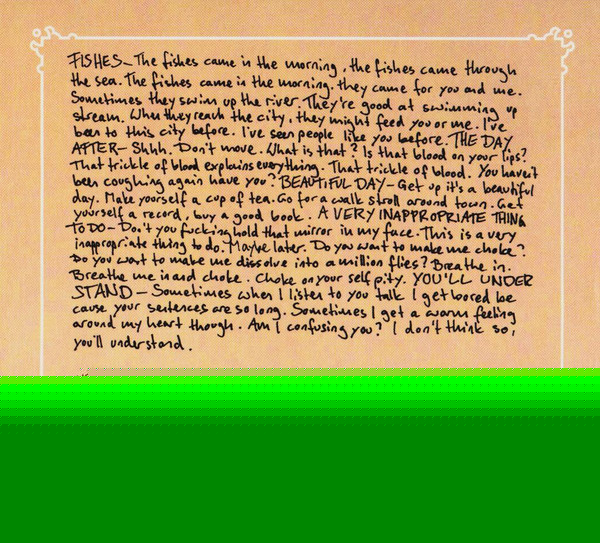 FISHES - The fishes came in the morning, the fishes came through
the sea. The fishes came in the morning. they came for you and me.
Sometimes they swim up the river. They're good at swimming up
stream. When they reach the city, they might feed you or me. I've
been to this city before. I've seen people like you before. THE DAY
AFTER - Shhh. Don't move. What is that? Is that blood on your lips?
That trickle of blood explains everything. That trickle of blood. You haven't
been coughing again have you? BEAUTIFUL DAY - Get up it's a beautiful
day. Make yourself a cup of tea. Go for a walk stroll around town. Get
yourself a record, buy a good book. A VERY INAPPROPRIATE THING
TO DO - Don't you fucking hold that mirror in my face. This is a very
inappropriate thing to do. Maybe later. Do you want to make me choke?
Do you want to make me dissolve into a million flies? Breathe in.
Breathe me in and choke. Choke on your self pity. YOU'LL UNDER
STAND - Sometimes when I listen to you talk I get bored be
cause your sentences are so long. Sometimes I get a warm feeling
around my heart though. Am I confusing you? I don't think so,
you'll understand.